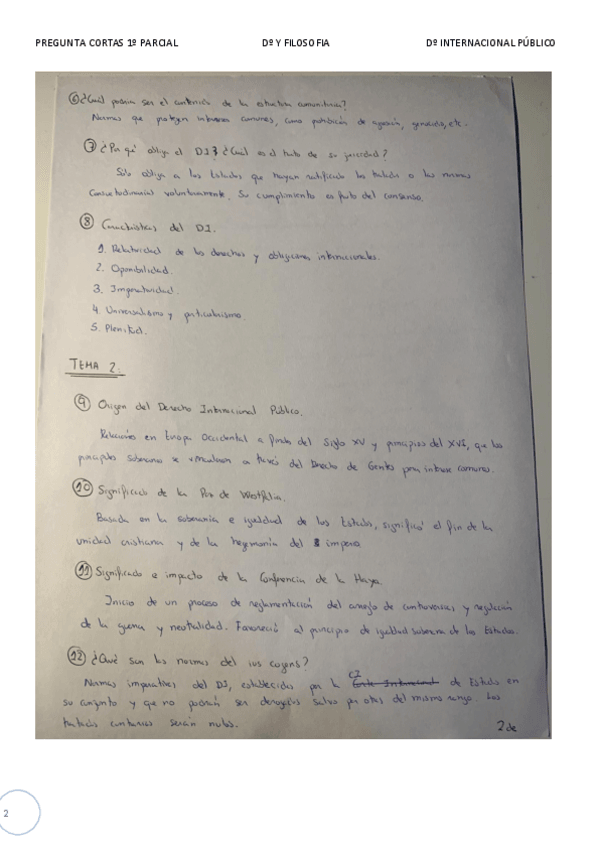 PREGUNTA CORTAS 1º PARCIAL Dº Y FILOSOFIA Dº INTERNACIONAL PÚBLICO
⑥ ¿Cuál podría ser el contenido de la estructura comunitaria?
Normas que protejen intereses comunes, como prohibición de agresión, genocidio, etc.
⑦ ¿Por qué obliga el D.I.? ¿Cuál es el fruto de su juricidad?
Sólo obliga a los Estados que hayan ratificado los tratados o las normas
consuetudinarias voluntariamente. Su cumplimiento es fruto del consenso.
⑧ Características del D.I.
1. Relatividad de los derechos y obligaciones internacionales.
2. Oponibilidad.
3. Imperatividad.
4. Universalismo y particularismo.
5. Plenitud.
TEMA 2.
⑨ Origen del Derecho Internacional Público.
Relaciones en Europa Occidental a finales del Siglo XV y principios del XVI, que los
principales soberanos se vincularon a través del Derecho de Gentes para intereses comunes.
⑩ Significado de la Paz de Westfalia.
Basada en la soberanía e igualdad de los Estados, significó el fin de la
unidad cristiana y de la hegemonía del imperio
⑪ Significado e impacto de la Conferencia de la Haya.
Inicio de un proceso de reglamentación del arreglo de controversias y regulación
de la guerra y neutralidad. Favoreció al principio de igualdad soberana de los Estados.
⑫ ¿Qué son las normas del ius cogens?
Normas imperativas del DI, establecidas por la CI de Estados en
su conjunto y que no podrán ser derogadas salvo por otras del mismo rango. Los
tratados contrarios serán nulos.
2 de
2